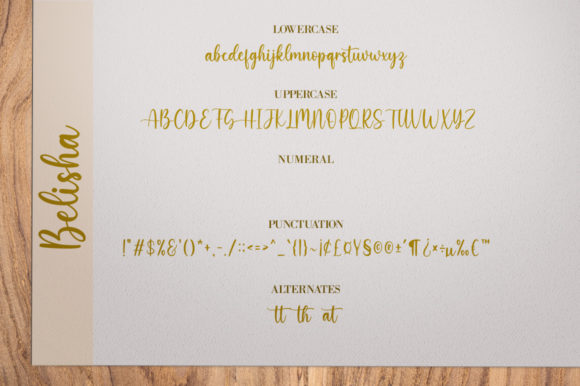 Belisha
LOWERCASE
abcdefghijklmnopqrstuvwxyz
UPPERCASE
ABCDEFGHIJKLMNOPQRSTUVWXYZ
NUMERAL
PUNCTUATION
!"#$%&'()*+,-./:;<=>^_`{|}~¡¢£¤¥§©®±´¶¿×÷µ‰€™
ALTERNATES
tt th at